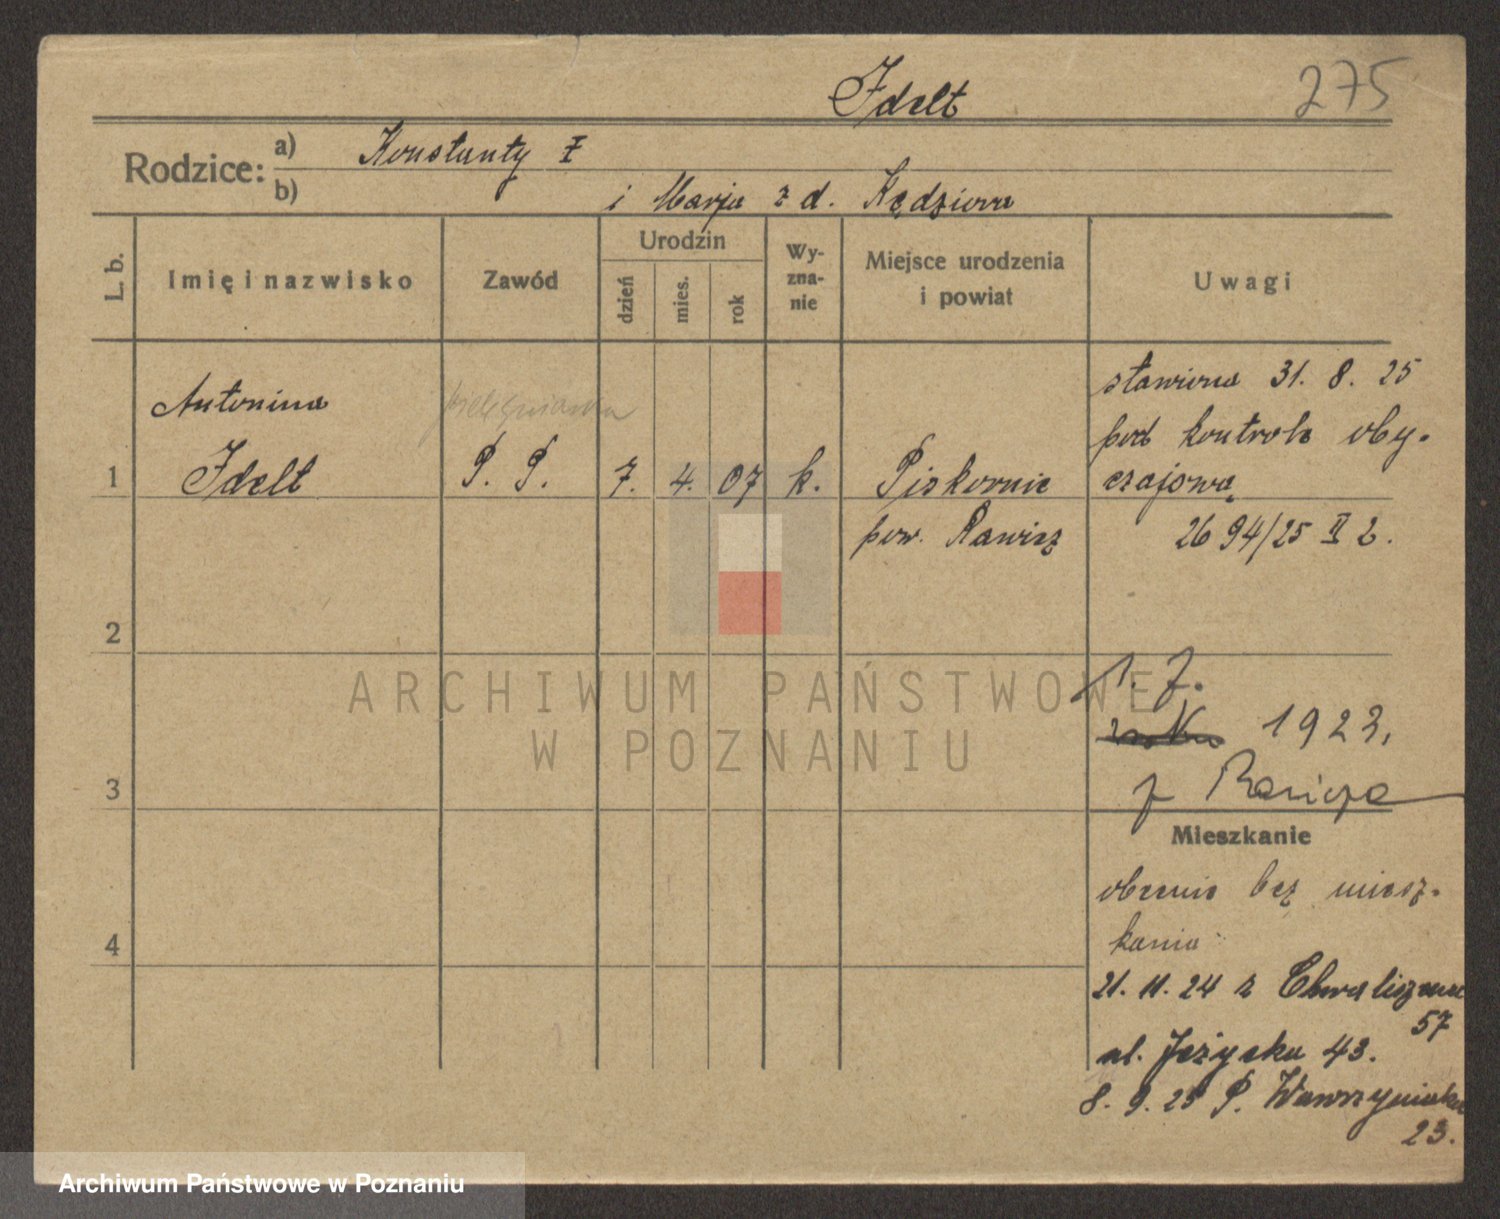 Idelt
275
Rodzice:
a) Konstanty I
b) i Marja z d. Kędziora
L. b.
Imię i nazwisko
Zawód
Urodzin
dzień
mies.
rok
Wy-
zna-
nie
Miejsce urodzenia
i powiat
Uwagi
1
Antonina
Idelt
pielęgniarka
P. P.
7. 4. 07
k.
Piskornie
pow. Rawicz
stawiona 31. 8. 25
pod kontrolę oby-
czajową
2694/25 II 2.
2
1. 7.
roku 1923,
z Rawicza
3
Mieszkanie
obecnie bez miesz-
kania
4
21. 11. 24 z Chwaliszewa
57
ul. Jeżycka 43.
8. 9. 25 P. Wawrzyniaka
23.
ARCHIWUM PAŃSTWOWE
W POZNANIU
Archiwum Państwowe w Poznaniu